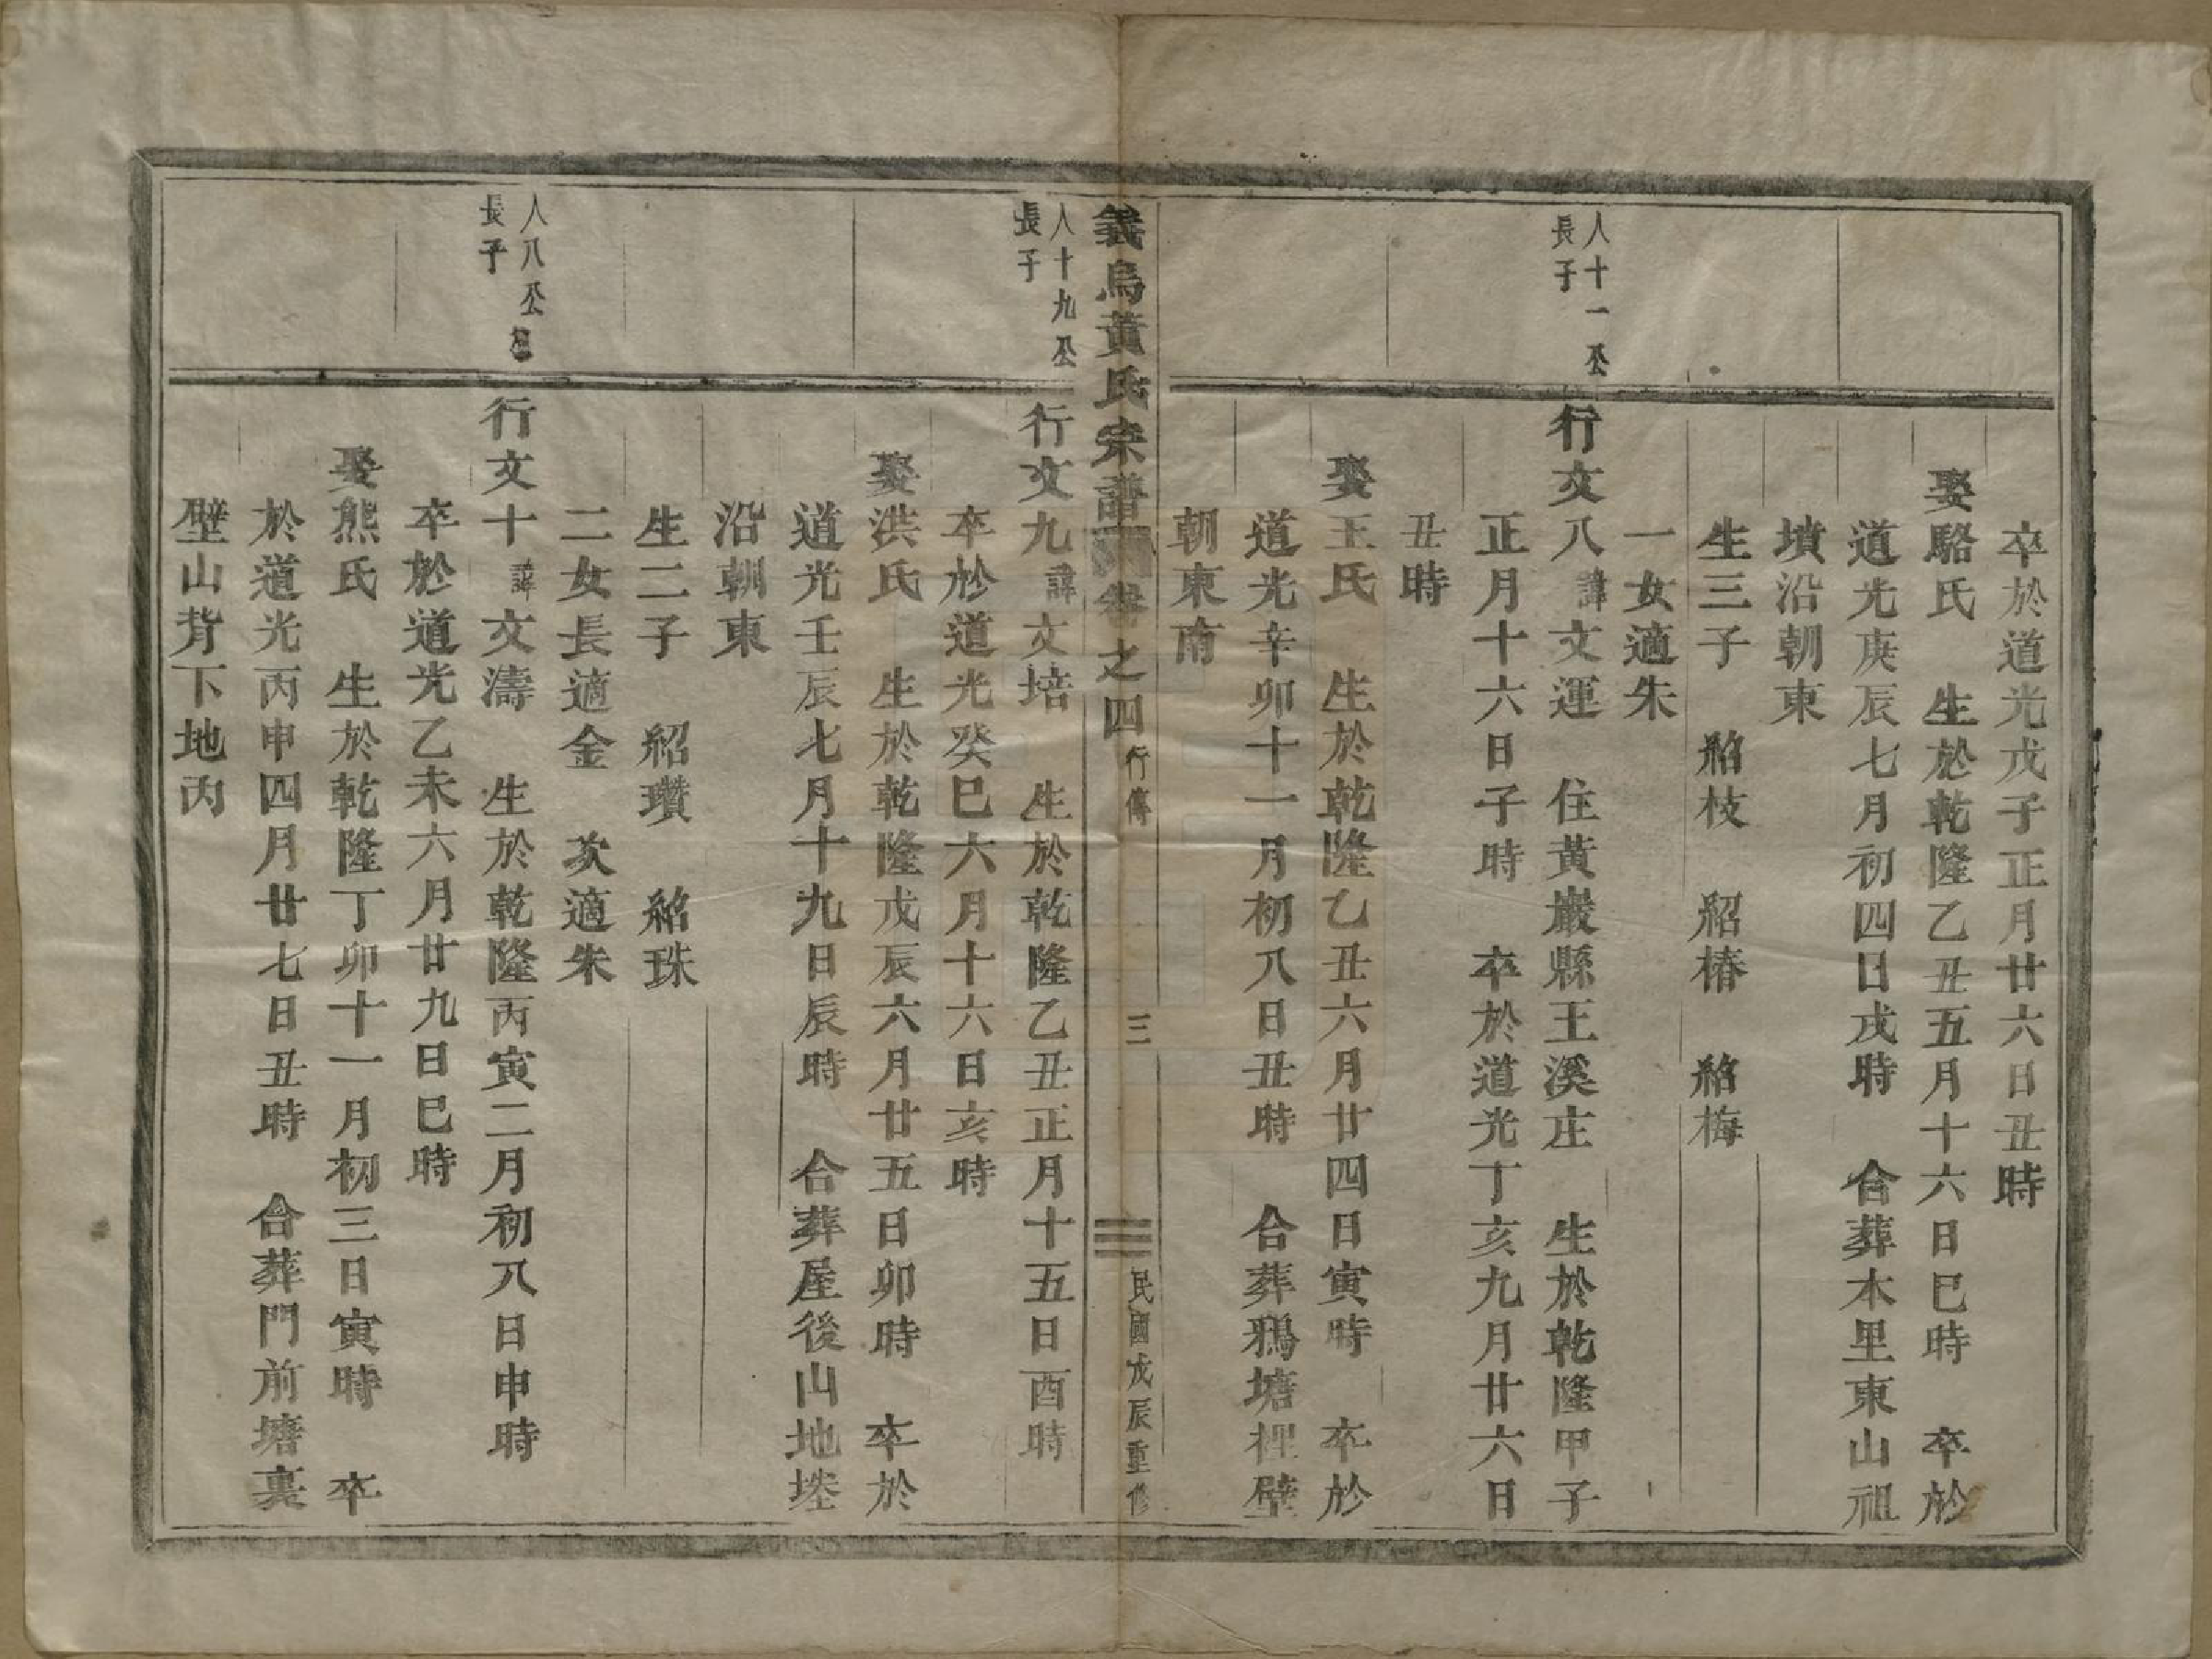 卒於道光戊子正月廿六日丑時
娶駱氏　生於乾隆乙丑五月十六日巳時　卒於
道光庚辰七月初四日戌時　合葬木里東山祖
墳沿朝東
生三子　紹枝　紹椿　紹梅
一女適朱
人十一公
長子
行文八諱文運　住黃巖縣王溪庄　生於乾隆甲子
正月十六日子時　卒於道光丁亥九月廿六日
丑時
娶王氏　生於乾隆乙丑六月廿四日寅時　卒於
道光辛卯十一月初八日丑時　合葬鴉塘裡壁
朝東南
義烏黃氏宗譜　卷之四　行傳　三　民國戊辰重修
人十九公
長子
行文九諱文培　生於乾隆乙丑正月十五日酉時
卒於道光癸巳六月十六日亥時
娶洪氏　生於乾隆戊辰六月廿五日卯時　卒於
道光壬辰七月十九日辰時　合葬屋後山地塋
沿朝東
生二子　紹瓚　紹珠
二女長適金　次適朱
人八公
長子
行文十諱文濤　生於乾隆丙寅二月初八日申時
卒於道光乙未六月廿九日巳時
娶熊氏　生於乾隆丁卯十一月初三日寅時　卒
於道光丙申四月廿七日丑時　合葬門前塘裏
壁山背下地內